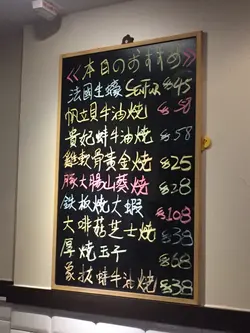 <<本日のおすすめ>>
法國生蠔 SENTUR $45
帆立貝牛油燒 $58
貴妃蚌牛油燒 $58
雞軟骨黃金燒 $25
豚大腸山葵燒 $28
鉄板燒大蝦 $108
大啡菇芝士燒 $38
厚燒玉子 $68
象拔蚌牛油燒 $38